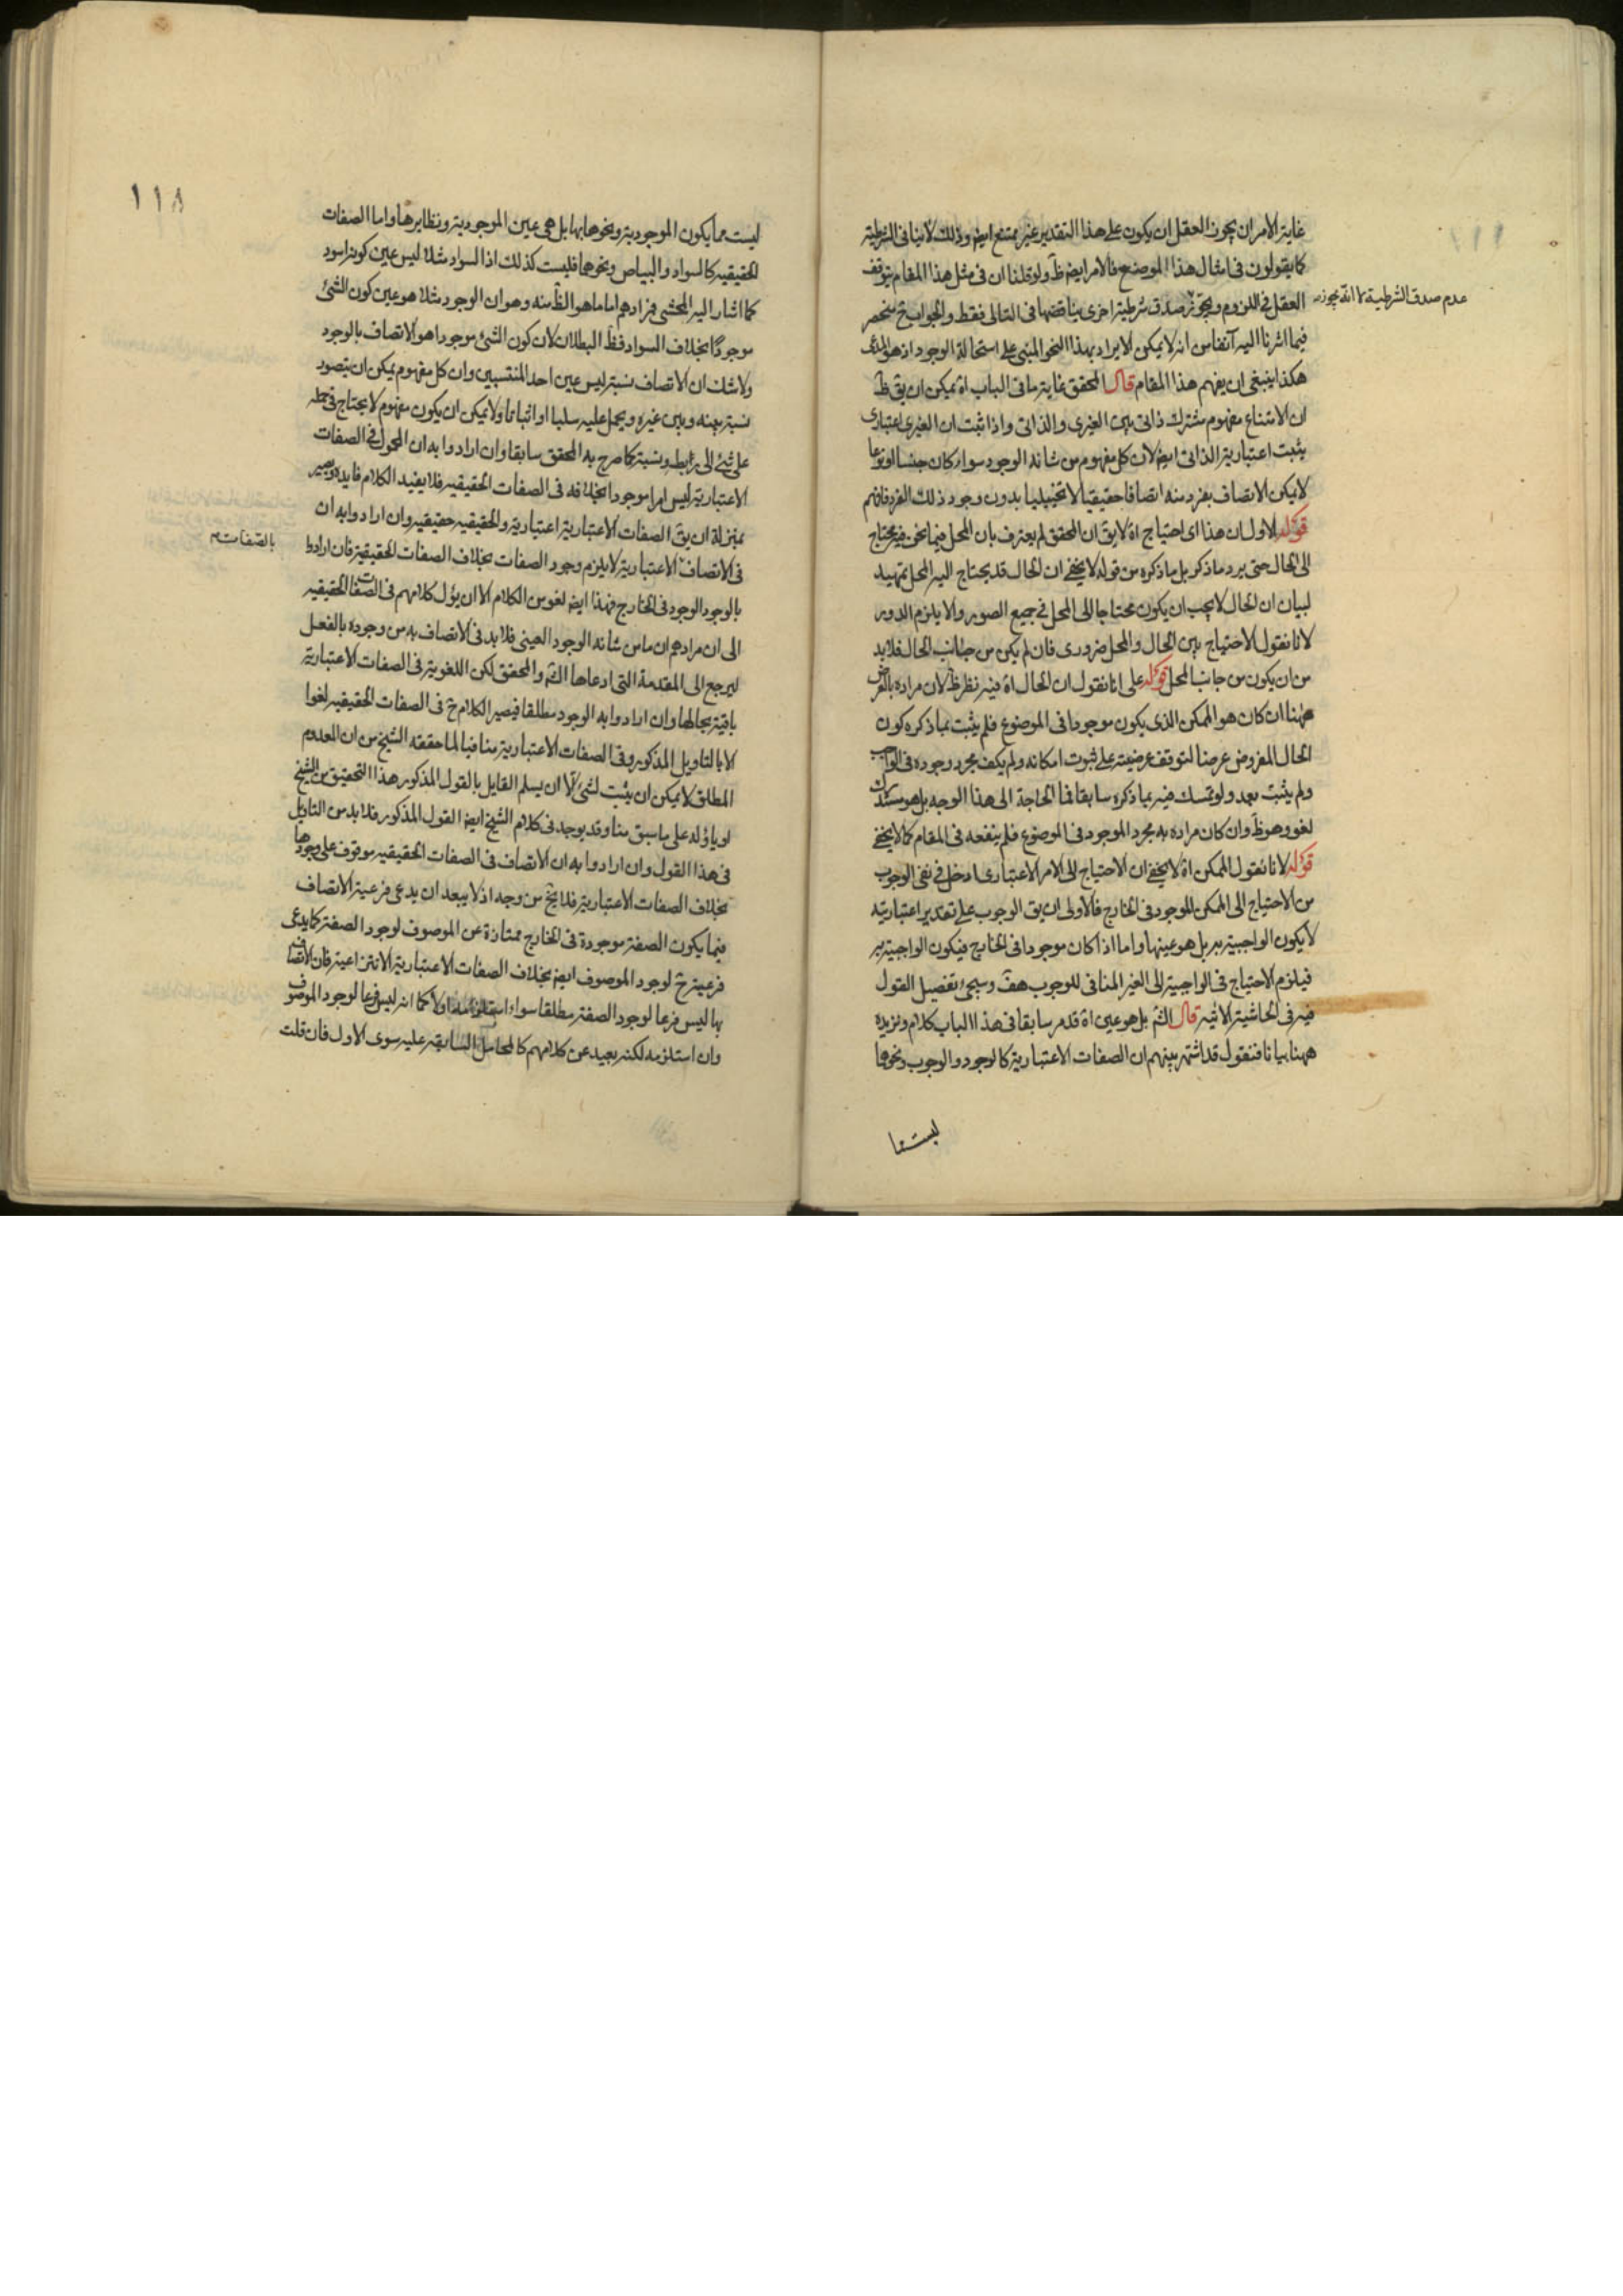 غاية الامر ان يجوز العقل ان يكون على هذا التقدير غير ممتنع ايض وذلك لا ينافى الشرطية
كما يقولون فى امثال هذا الموضع فالامر ايض ظ ولو قلنا ان فى مثل هذا المقام يتوقف
العقل فى اللزوم ويجوز صدق شرطية اخرى يناقضها فى التالى فقط والجواب ح منحصر
عدم صدق الشرطية لا انه يجوز
فيما اشرنا اليه آنفا من انه لا يمكن الايراد بهذا النحو المبنى على استحالة الوجود اذ هو المدعى
هكذا ينبغى ان يفهم هذا المقام قال المحقق غاية ما فى الباب اه يمكن ان يق ظ
ان الامتناع مفهوم مشترك ذاتى بين الغيرى والذاتى واذا ثبت ان الغيرى اعتبارى
يثبت اعتبارية الذاتى ايض لان كل مفهوم من شانه الوجود سواء كان جنسا او نوعا
لا يمكن الاتصاف بفرد منه اتصافا حقيقيا لا تخييليا بدون وجود ذلك الفرد فافهم
قوله الاول ان هذا اى احتياج اه لا يق ان المحقق لم يعترف بان المحل فيما نحن فيه محتاج
الى الحال حتى يرد ما ذكر بل ما ذكره من قوله لا يخفى ان الحال قد يحتاج اليه المحل تمهيد
لبيان ان الحال لا يجب ان يكون محتاجا الى المحل فى جميع الصور والا يلزم الدور
لانا نقول الاحتياج بين الحال والمحل ضرورى فان لم يكن من جانب الحال فلا بد
من ان يكون من جانب المحل قوله على انا نقول ان الحال اه فيه نظر ظ لان مراده بالعرض
ههنا ان كان هو الممكن الذى يكون موجودا فى الموضوع فلم يثبت بما ذكره كون
الحال المفروض عرضا لتوقف عرضيته على ثبوت امكانه ولم يكف مجرد وجوده فى الواجب
ولم يثبت بعد ولو تمسك فيه بما ذكره سابقا فما الحاجة الى هذا الوجه بل هو مستدرك
لغو وهو ظ وان كان مراده به مجرد الموجود فى الموضوع فلم ينفعه فى المقام كما لا يخفى
قوله لانا نقول الممكن اه لا يخفى ان الاحتياج الى الامر الاعتبارى ادخل فى نفى الوجوب
من الاحتياج الى الممكن الموجود فى الخارج فالاولى ان يق الوجوب على تقدير اعتباريته
لا يكون الواجبية به بل هو عينها واما اذا كان موجودا فى الخارج فيكون الواجبية به
فيلزم الاحتياج فى الواجبية الى الغير المنافى للوجوب هف وسيجئ تفصيل القول
فيه فى الحاشية الاتيه قال الشم بل هو عين اه قد مر سابقا فى هذا الباب كلام ونزيده
ههنا بيانا فنقول قد اشتهر بينهم ان الصفات الاعتبارية كالوجود والوجوب ونحوها
ليست مما
١١٨
ليست مما يكون الموجودية ونحوها بها بل هى عين الموجودية ونظايرها واما الصفات
الحقيقيه كالسواد والبياض ونحوها فليست كذلك اذ السواد مثلا ليس عين كونه اسود
كما اشار اليه المحشى فمرادهم اما ما هو الظ منه وهو ان الوجود مثلا هو عين كون الشئ
موجودا بخلاف السواد فظ البطلان لان كون الشئ موجودا هو الاتصاف بالوجود
ولا شك ان الاتصاف نسبة ليس عين احد المنتسبين وان كل مفهوم يمكن ان يتصور
نسبة بينه وبين غيره ويحمل عليه سلبا او اثباتا ولا يمكن ان يكون مفهوم لا يحتاج فى حمله
على شئ الى رابطه ونسبة كما صرح به المحقق سابقا وان ارادوا به ان المحمول فى الصفات
الاعتبارية ليس امرا موجودا بخلافه فى الصفات الحقيقيه فلا يفيد الكلام فايده ويصير
بمنزلة ان يق الصفات الاعتبارية اعتبارية والحقيقيه حقيقيه وان ارادوا به ان
فى الاتصاف الاعتبارية لا يلزم وجود الصفات بخلاف الصفات الحقيقية فان ارادوا
بالصفات
بالوجود الوجود فى الخارج فهذا ايض لغو من الكلام الا ان يؤل كلامهم فى الصفات الحقيقيه
الى ان مرادهم ان ما من شانه الوجود العينى فلا بد فى الاتصاف به من وجوده بالفعل
ليرجع الى المقدمة التى ادعاها الشم والمحقق لكن اللغوية فى الصفات الاعتبارية
باقية بحالها وان ارادوا به الوجود مطلقا فيصير الكلام ح فى الصفات الحقيقيه لغوا
الا بالتاويل المذكور وفى الصفات الاعتبارية منافيا لما حققه الشيخ من ان المعدوم
المطلق لا يمكن ان يثبت لشئ الا ان يسلم القايل بالقول المذكور هذا التحقيق من الشيخ
او ياوله على ما سبق منا وقد يوجد فى كلام الشيخ ايض القول المذكور فلا بد من التاويل
فى هذا القول وان ارادوا به ان الاتصاف فى الصفات الحقيقيه موقوف على وجودها
بخلاف الصفات الاعتبارية فلا يخ من وجه اذ لا يبعد ان يدعى فرعية الاتصاف
فيما يكون الصفة موجودة فى الخارج ممتازة عن الموصوف لوجود الصفة كما يدعى
فرعيته ح لوجود الموصوف ايض بخلاف الصفات الاعتبارية الانتزاعية فان الاتصاف
بها ليس فرعا لوجود الصفة مطلقا سواء استلزمه اولا كما انه ليس فرعا لوجود الموصوف
وان استلزمه لكنه بعيد عن كلامهم كالمحامل السابقه عليه سوى الاول فان قلت